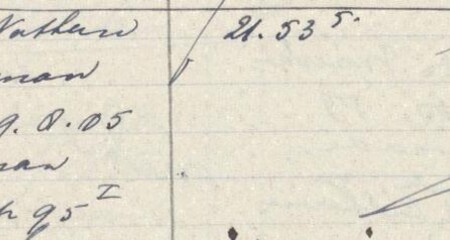 Nathan 21.53 5.
man
9.8.05
man
95 I